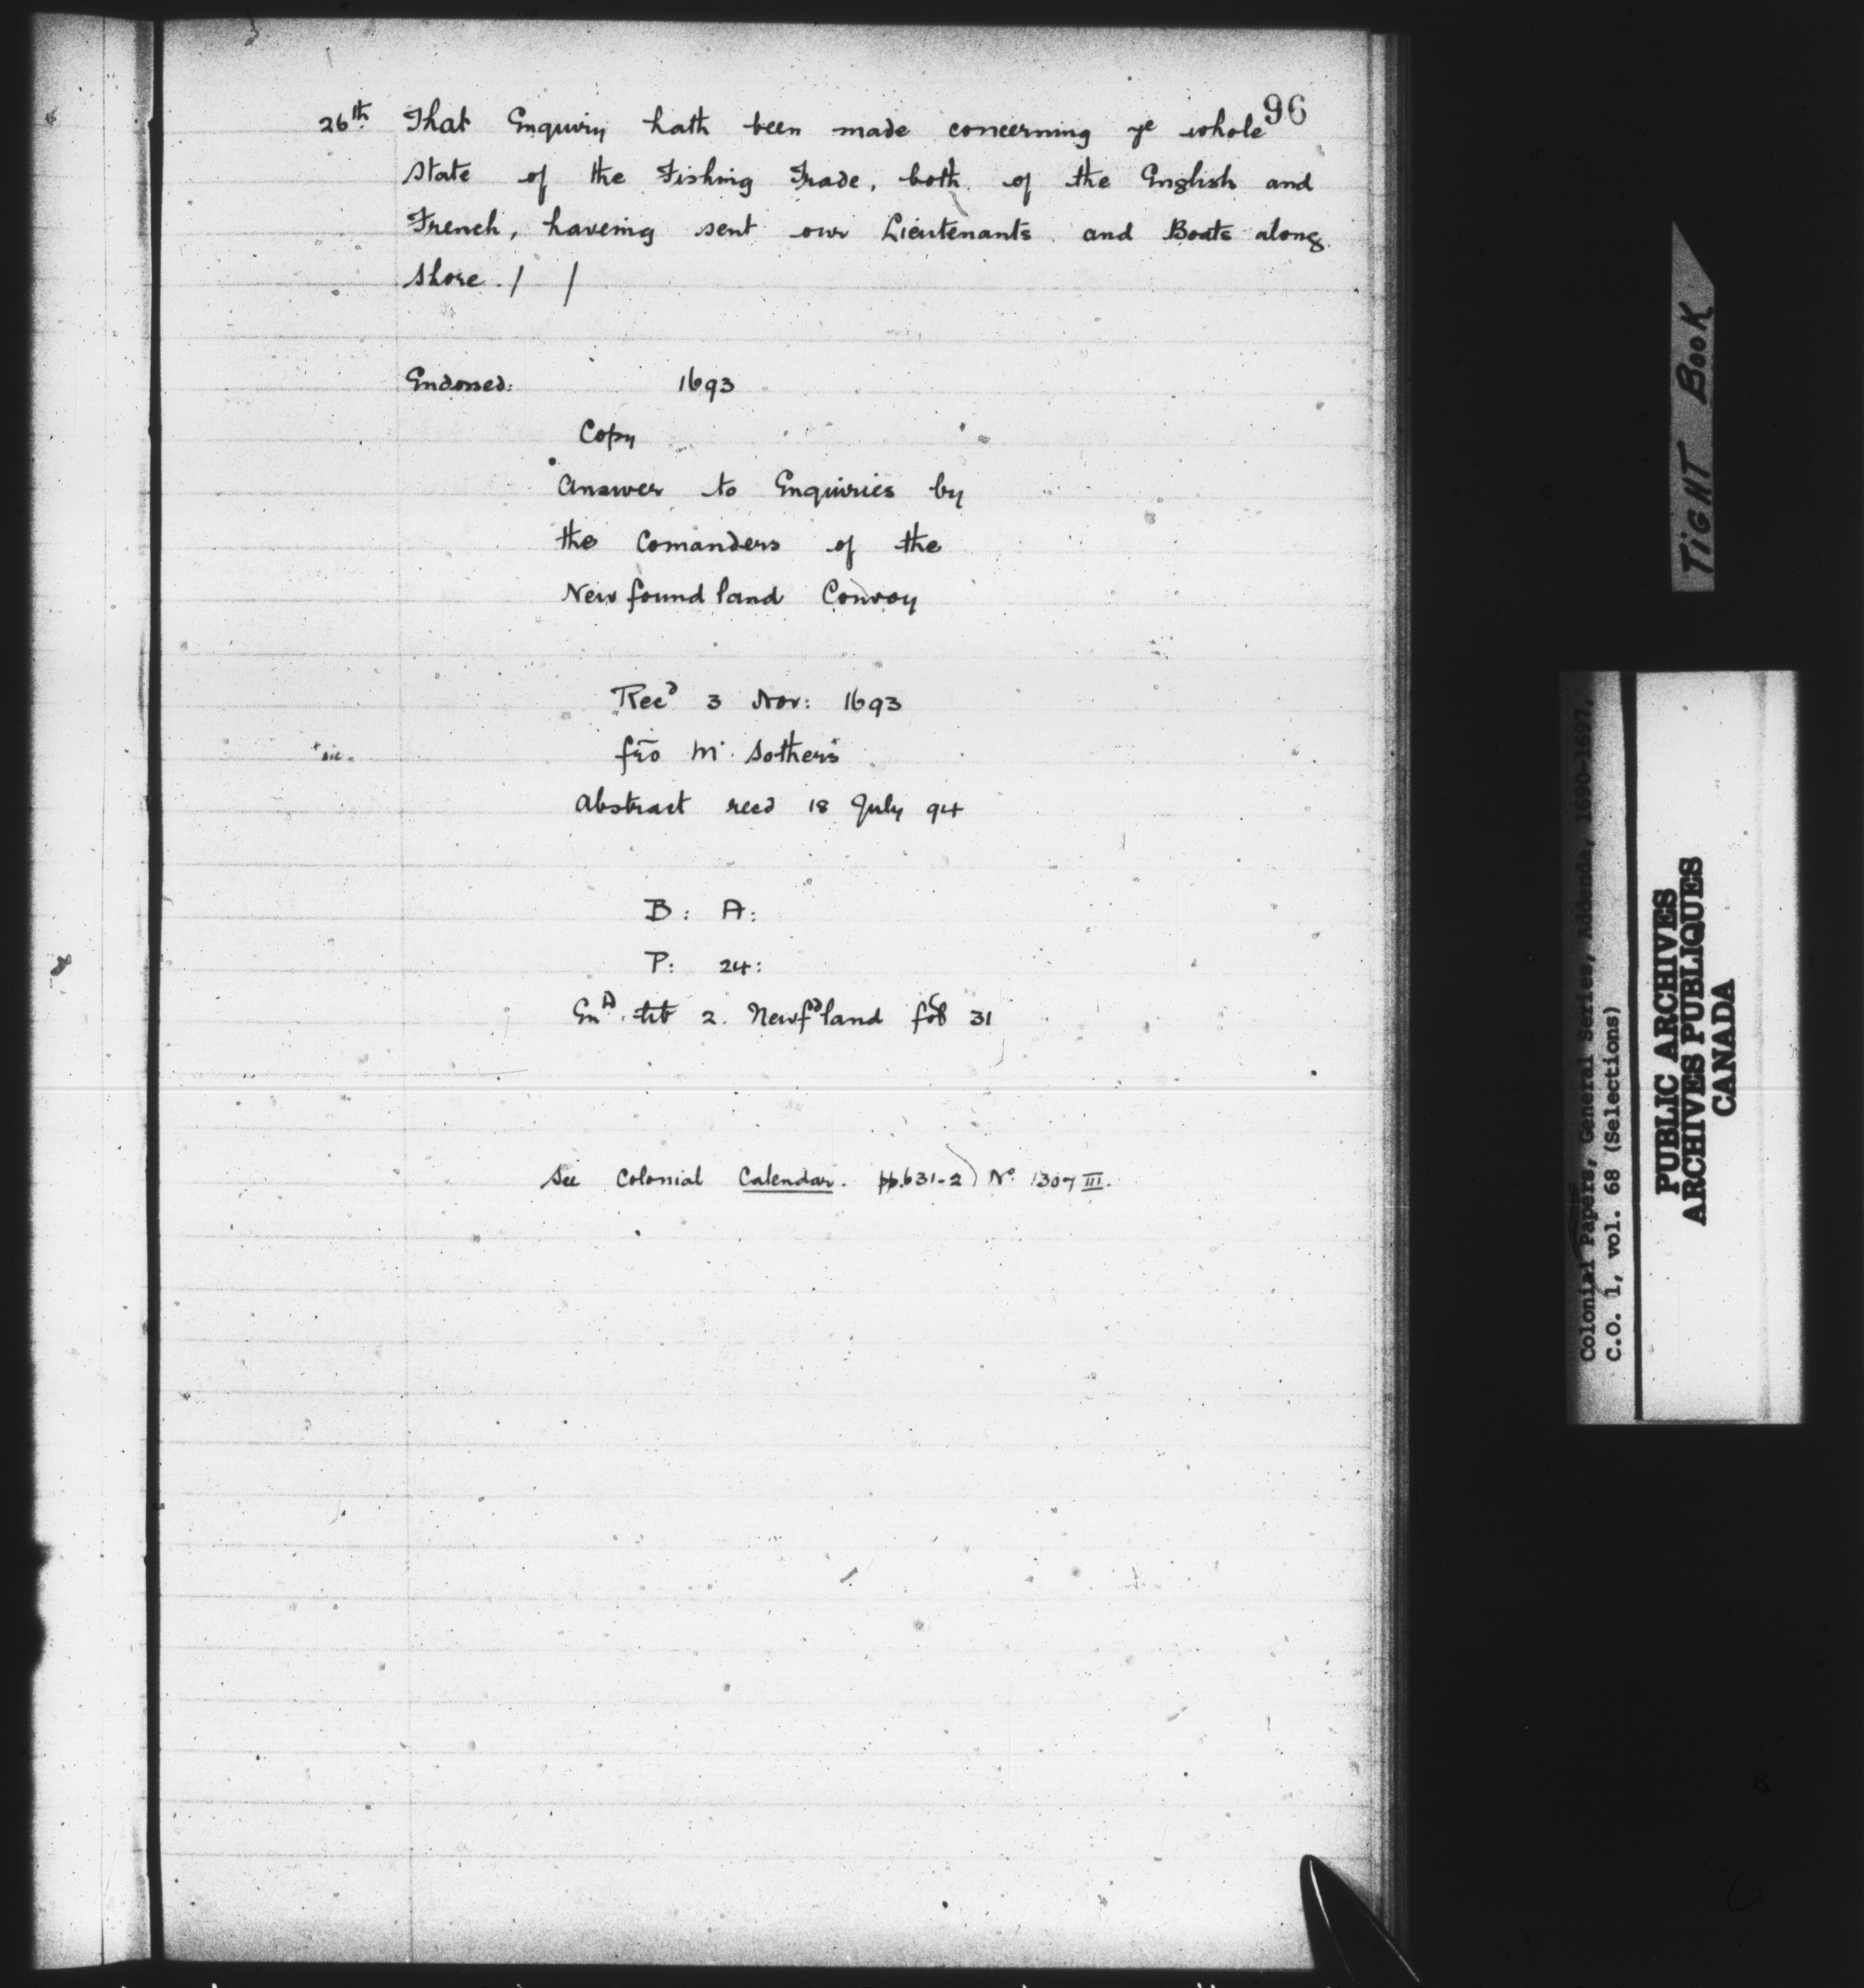 96
26th. That Enquiry hath been made concerning ye whole
state of the Fishing Trade, both of the English and
French, haveing sent our Lieutenants and Boats along
shore. / /
Endorsed: 1693
Copy
Answer to Enquiries by
the Comanders of the
New found land Convoy
Recd 3 Nov: 1693
* sic. frō Mr Sothers*
Abstract recd 18 July 94
B: A:
P: 24:
End. lib 2. Newfdland fol 31
See Colonial Calendar. pp. 631-2) No. 1307 III.
TIGHT BOOK
Colonial Papers, General Series, Addenda, 1690-1697,
C.O. 1, vol. 68 (Selections)
PUBLIC ARCHIVES
ARCHIVES PUBLIQUES
CANADA